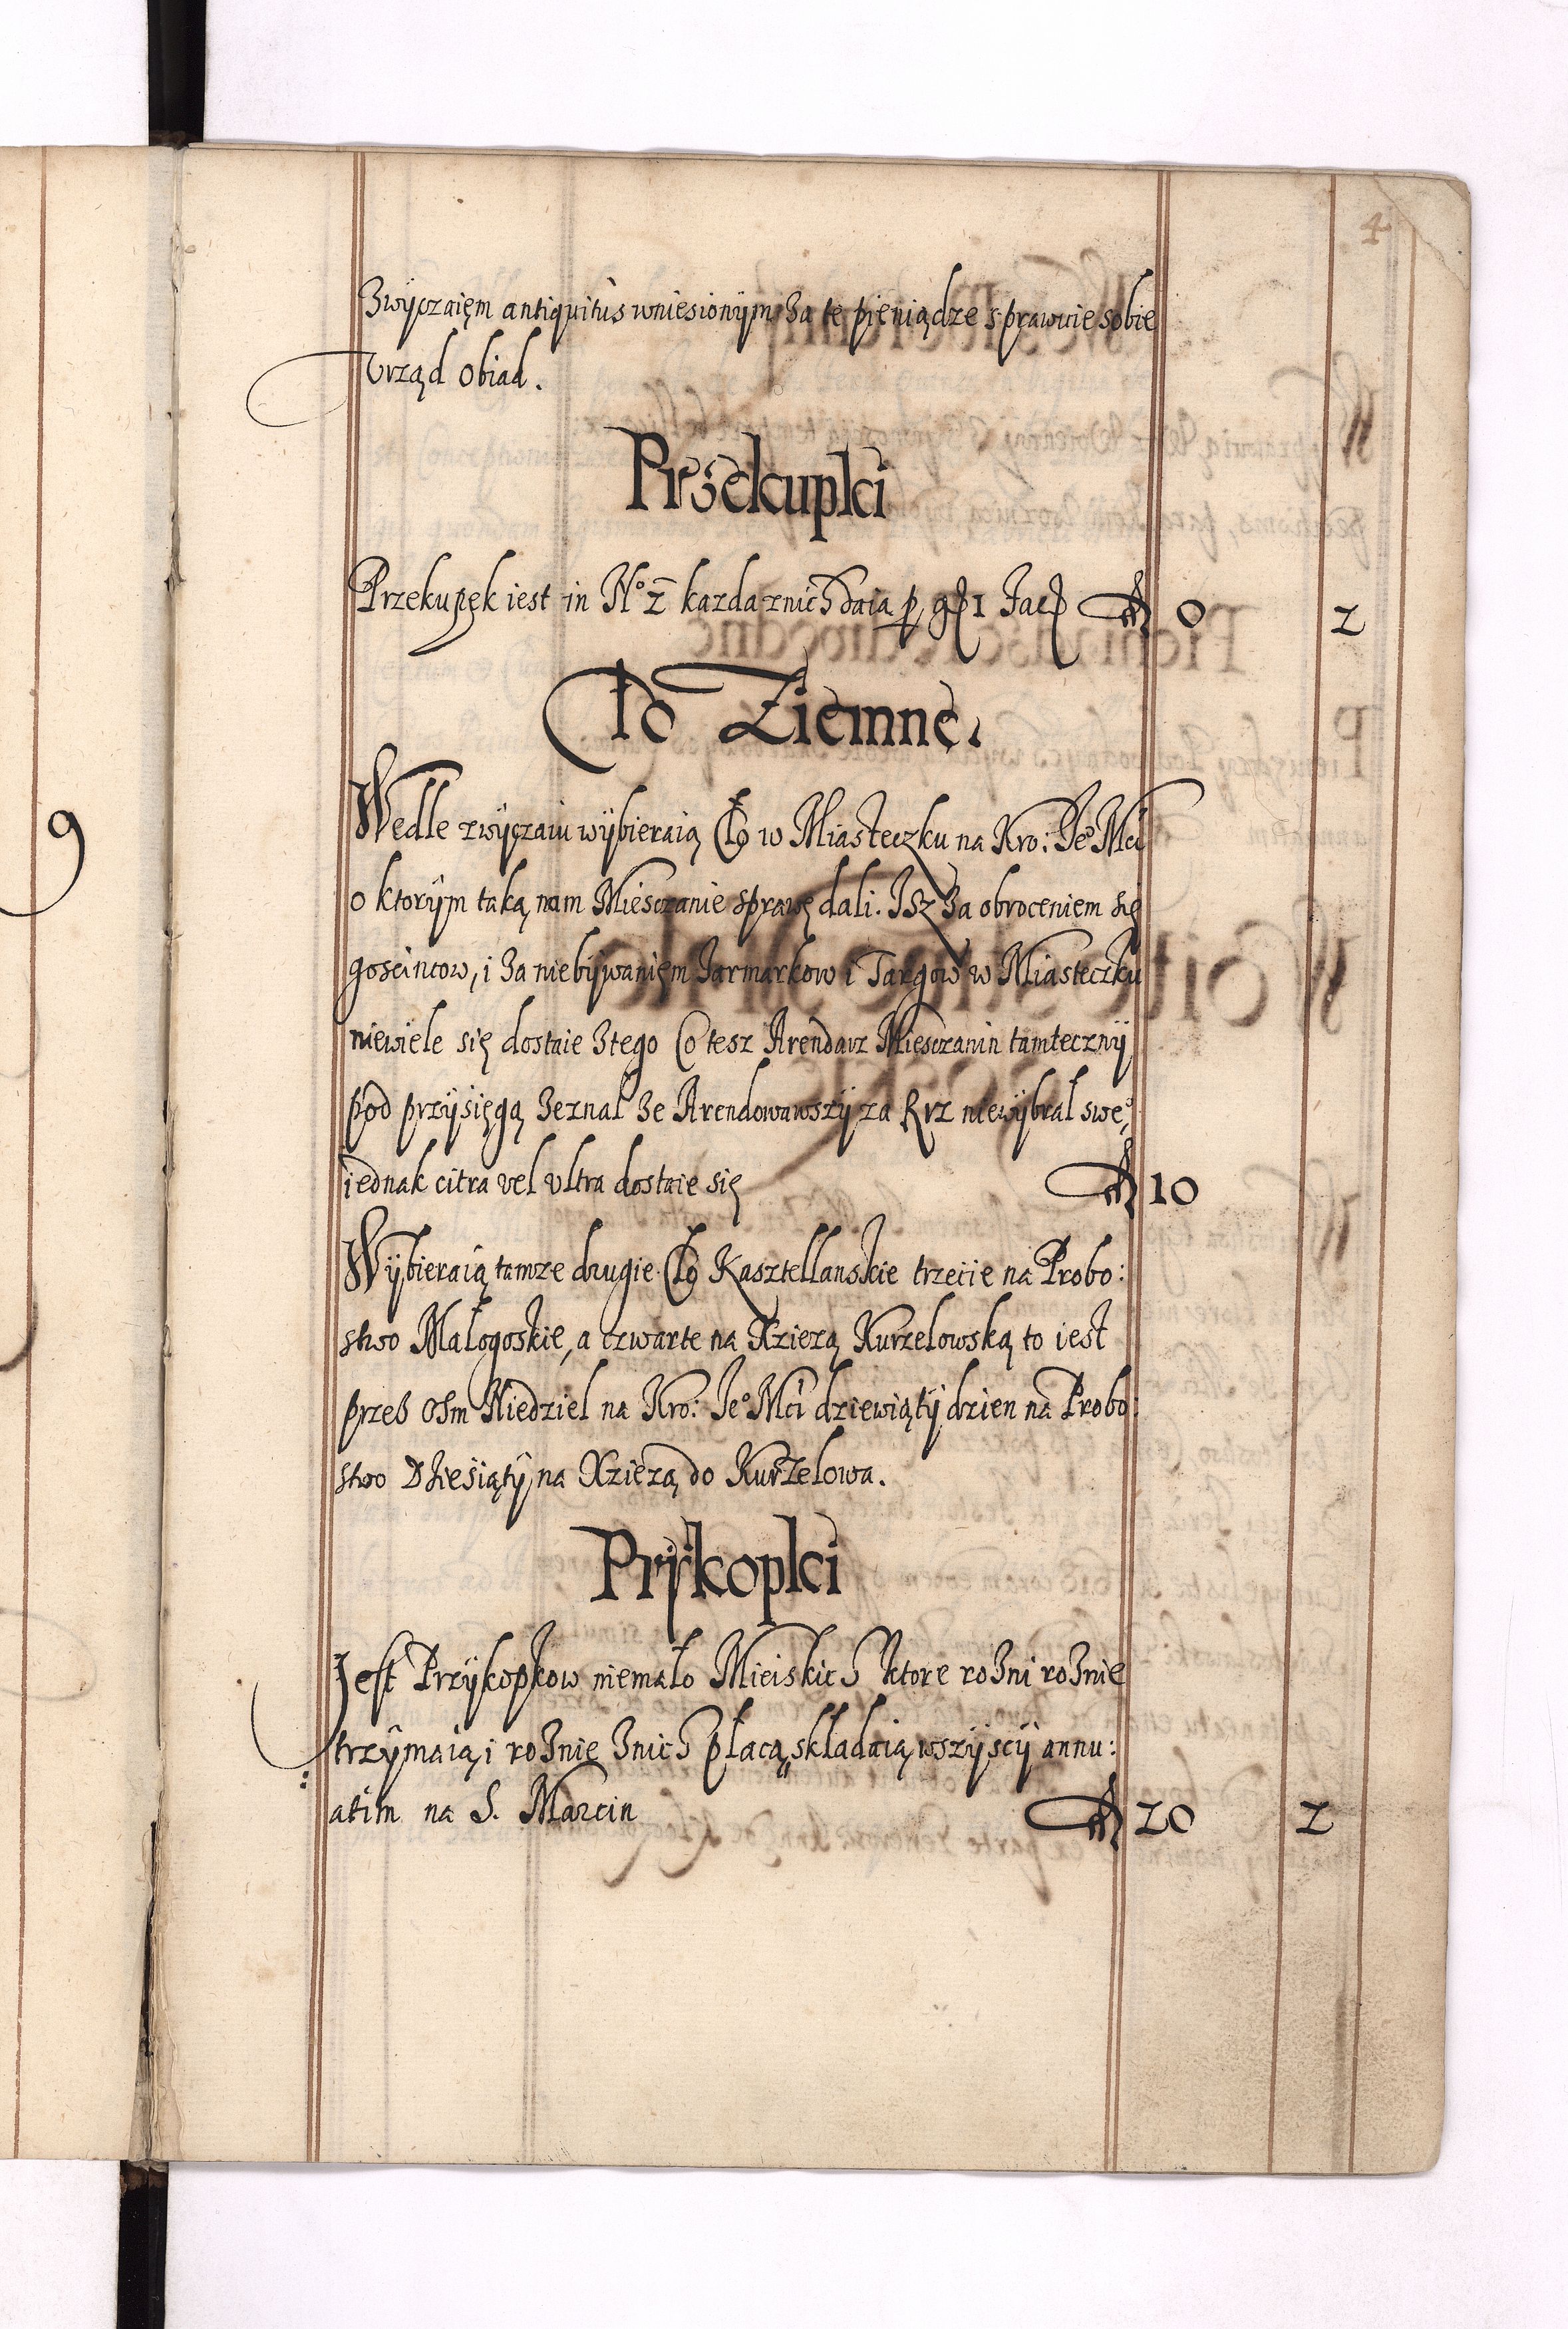 4
Zwyczaięm antiquitùs wniesionÿm Za te pieniądze sprawuie sobie
Vrząd obiad.
Przekupki
Przekupęk iest in Nº 2 kazda znich daia p gr 1 Fac fl 0 2
Cło Ziemne.
Wedle zwÿczaiu wÿbieraią Cło w Miasteczku na Kro: Jeº Mci
o ktorÿm taką nam Miesczanie sprawę dali. Isz Za obroceniem się
goscincow, i Za niebÿwanięm Jarmarkow i Targow w Miasteczku
niewiele się dostaie Ztego Co tesz Arendarz Miesczanin tamtecznÿ
pod przÿsięgą Zeznał Ze Arendowawszÿ za fl 12 niewÿbrał sweº,
iednak citra vel vltra dostaie się fl 10
Wÿbieraią tamze drugie Cło Kasztellanskie trzecie na Probo:
stwo Małogoskie, a czwarte na Xziezą Kurzelowską to iest
przes osm Niedziel na Kro: Jeº Mci dziewiątÿ dzien na Probo:
stwo Dziesiątÿ na Xziezą do Kurzelowa.
Przÿkopki
Jest Przÿkopkow niemało Mieiskich ktore roZni roZnie
trzÿmaią i roZnie Znich płacą, składaią wszÿscÿ annu:
atim na S. Marcin fl 20 2
9